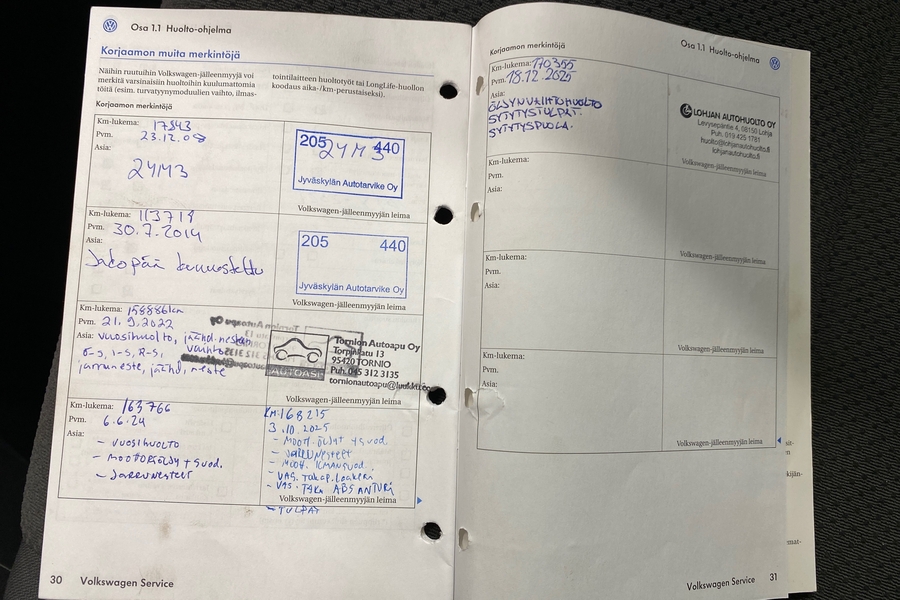 Osa 1.1 Huolto-ohjelma
Korjaamon muita merkintöjä
Näihin ruutuihin Volkswagen-jälleenmyyjä voi
merkitä varsinaisiin huoltoihin kuulumattomia
töitä (esim. turvatyynymoduulien vaihto, ilmas-
tointilaitteen huoltotyöt tai LongLife-huollon
koodaus aika-/km-perustaiseksi).
Korjaamon merkintöjä
Km-lukema: 17543
Pvm. 23.12.08
Asia:
24M3
205 440
24M3
Jyväskylän Autotarvike Oy
Volkswagen-jälleenmyyjän leima
Km-lukema: 113719
Pvm. 30.7.2014
Asia:
Jakopään kunnostettu
205 440
Jyväskylän Autotarvike Oy
Volkswagen-jälleenmyyjän leima
Km-lukema: 158886km
Pvm. 21.9.2022
Asia: vuosihuolto, jäähd.nesteen
vaihto
ö-s, i-s, R-s,
jarruneste, jäähd, neste
Tornion Autoapu Oy
Torpinkatu 13
95420 TORNIO
Puh. 045 312 3135
tornionautoapu@luukku.com
AUTOASI
Volkswagen-jälleenmyyjän leima
Km-lukema: 163766
Pvm. 6.6.24
Asia:
- VUOSIHUOLTO
- MOOTTORIÖLJY + SUOD.
- JARRUNESTEET
Km: 168215
3.10.2025
- MOOTT.ÖLJYT + SUOD.
- JARRUNESTEET
- MOOT. ILMANSUOD.
- VAS. TAKAP. LAAKERI
- VAS. TAKA ABS ANTURI
Volkswagen-jälleenmyyjän leima
- TULPAT
30 Volkswagen Service
Osa 1.1 Huolto-ohjelma
Korjaamon merkintöjä
Km-lukema: 170355
Pvm. 18.12.2025
Asia:
ÖLJYNVAIHTOHUOLTO
SYTYTYSTULPAT.
SYTYTYSPUOLA.
LOHJAN AUTOHUOLTO OY
Levysepäntie 4, 08150 Lohja
Puh. 019 425 1781
huolto@lohjanautohuolto.fi
lohjanautohuolto.fi
Volkswagen-jälleenmyyjän leima
Km-lukema:
Pvm.
Asia:
Volkswagen-jälleenmyyjän leima
Km-lukema:
Pvm.
Asia:
Volkswagen-jälleenmyyjän leima
Km-lukema:
Pvm.
Asia:
Volkswagen-jälleenmyyjän leima
Volkswagen Service 31